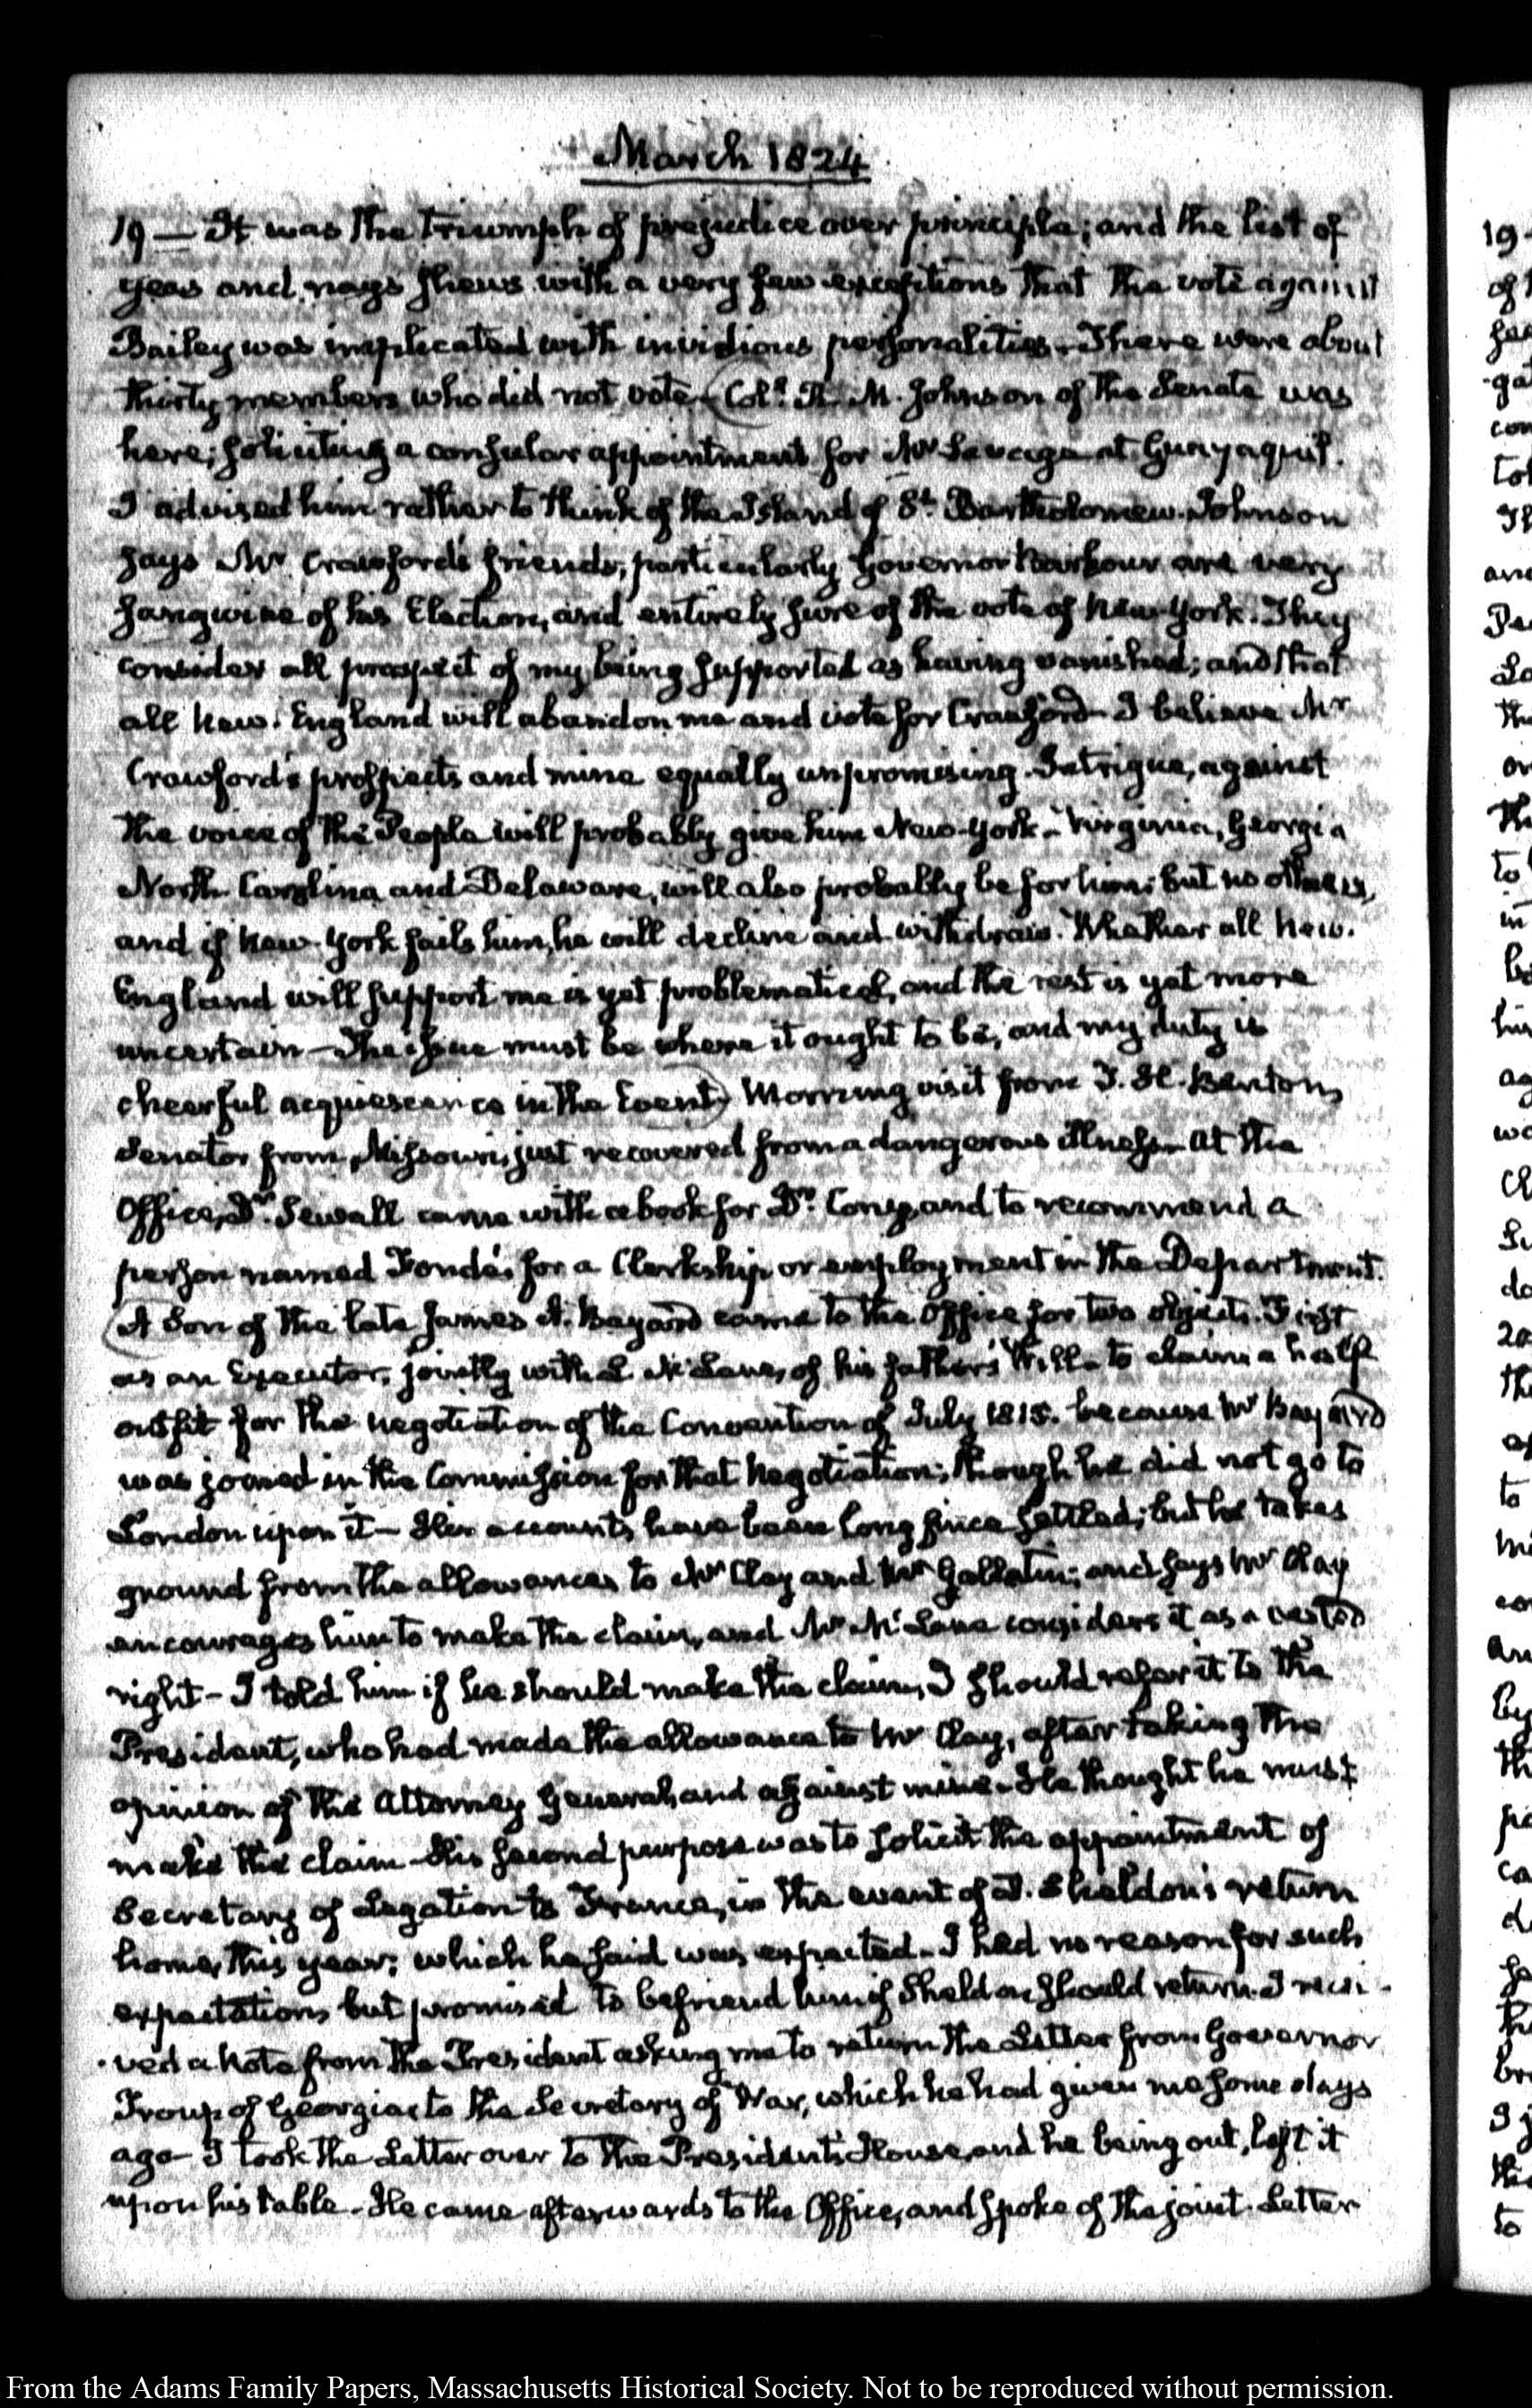 March 1824
19 — It was the triumph of prejudice over principle; and the list of
yeas and nays shews with a very few exceptions that the vote against
Bailey was implicated with invidious personalities. There were about
thirty members who did not vote. Coll. R. M. Johnson of the Senate was
here; soliciting a consular appointment for Mr Savage at Guayaquil.
I advised him rather to think of the Island of St. Bartholomew. Johnson
says Mr Crawford's friends, particularly Governor Barbour are very
sanguine of his Election, and entirely sure of the vote of New-York. They
consider all prospect of my being supported as having vanished; and that
all New-England will abandon me and vote for Crawford. I believe Mr
Crawford's prospects and mine equally unpromising. Intrigue, against
the voice of the People will probably give him New-York — Virginia, Georgia
North-Carolina and Delaware, will also probably be for him; but no others,
and if New-York fails him, he will decline and withdraw. Whether all New-
England will support me is yet problematical, and the rest is yet more
uncertain — The issue must be where it ought to be, and my duty is
cheerful acquiescence in the Event. Morning visit from T. H. Benton,
Senator from Missouri, just recovered from a dangerous illness. At the
Office, Dr. Sewall came with a book for Dr. Cony, and to recommend a
person named Fondé, for a Clerkship or employment in the Department.
A Son of the late James A. Bayard came to the Office for two objects. First
as an Executor, jointly with L. McLane, of his father's Will — to claim a half
outfit for the negotiation of the Convention of July 1815. because Mr Bayard
was joined in the Commission for that Negotiation; though he did not go to
London upon it — His accounts have been long since settled; but he takes
ground from the allowances to Mr Clay and Mr Gallatin; and says Mr Clay
encourages him to make the claim, and Mr McLane considers it as a vested
right — I told him if he should make the claim, I should refer it to the
President, who had made the allowance to Mr Clay, after taking the
opinion of the Attorney General, and against mine. He thought he must
make the claim — His second purpose was to solicit the appointment of
Secretary of Legation to France, in the event of D. Sheldon's return
home, this year; which he said was expected. I had no reason for such
expectation, but promised to befriend him if Sheldon should return. I recei-
-ved a Note from the President asking me to return the Letter from Governor
Troup of Georgia, to the Secretary of War, which he had given me some days
ago — I took the Letter over to the President's House, and he being out, left it
upon his table. He came afterwards to the Office, and spoke of the joint Letter
19
of
ga
com
to
Th
and
Th
to
in
his
ag
wo
20
th
to
By
th
to
From the Adams Family Papers, Massachusetts Historical Society. Not to be reproduced without permission.